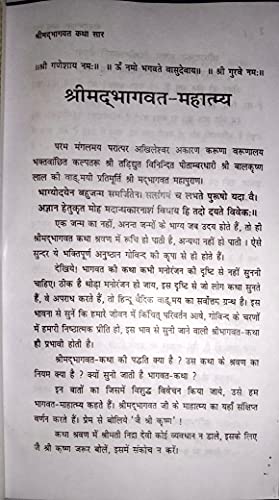 श्रीमद्भागवत कथा सार
॥श्री गणेशाय नमः॥ ॥ ऊँ नमो भगवते वासुदेवाय॥ ॥ श्री गुरवे नमः॥
श्रीमद्भागवत-महात्म्य
परम मंगलमय परात्पर अखिलेश्वर अकारण करूणा वरूणालय
भक्तवांछित कल्पतरू श्री तड़िद्युत विनिन्दित पीताम्बरधारी श्री बालकृष्ण
लाल की वाङ्मयी प्रतिमूर्ति श्री मद्भागवत महापुराण।
भाग्योदयेन बहुजन्म समर्जितेन। सत्संगमं च लभते पुरूषो यदा वै।
अज्ञान हेतुकृत मोह मदान्धकारनाशं विधाय हि तदो दयते विवेकः॥
एक जन्म का नहीं, अनन्त जन्मों के भाग्य जब उदय होते हैं, तो ही
श्रीमद्भागवत कथा श्रवण में रूचि हो पाती है, अन्यथा नहीं हो पाती । ऐसे
सुन्दर ये भक्तिपूर्ण अनुष्ठान गोविन्द की कृपा से ही होते हैं।
देखिये! भागवत की कथा कभी मनोरंजन की दृष्टि से नहीं सुननी
चाहिए। ठीक है थोड़ा मनोरंजन हो जाय, इस दृष्टि से जो लोग कथा सुनते
हैं, वे अपराध करते हैं, तो हिन्दू वैदिक वाङ्मय का सर्वोत्तम ग्रन्थ है। इस
भावना से सुनें कि हमारे जीवन में किंचित् परिवर्तन आवे, गोविन्द के चरणों
में हमारी निष्ठात्मक प्रीति हो, इस भाव से सुनी जाने वाली श्रीभागवत-कथा
ही प्रभावी होती है।
श्रीमद्भागवत-कथा की पद्धति क्या है ? उस कथा के श्रवण का
नियम क्या है ? क्यों सुनी जाती है भागवत-कथा ?
इन बातों का जिसमें विशुद्ध विवेचन किया जाये, उसे हम
भागवत-माहात्म्य कहते हैं। श्रीमद्भागवत जी के माहात्म्य का यहाँ संक्षिप्त
वर्णन करते हैं। प्रेम से बोलिये 'जै श्री कृष्ण' !
कथा श्रवण में श्रीमती निद्रा देवी कोई व्यवधान न डाले, इसके लिए
जै श्री कृष्ण जरूर बोलें, इसमें संकोच न करें।